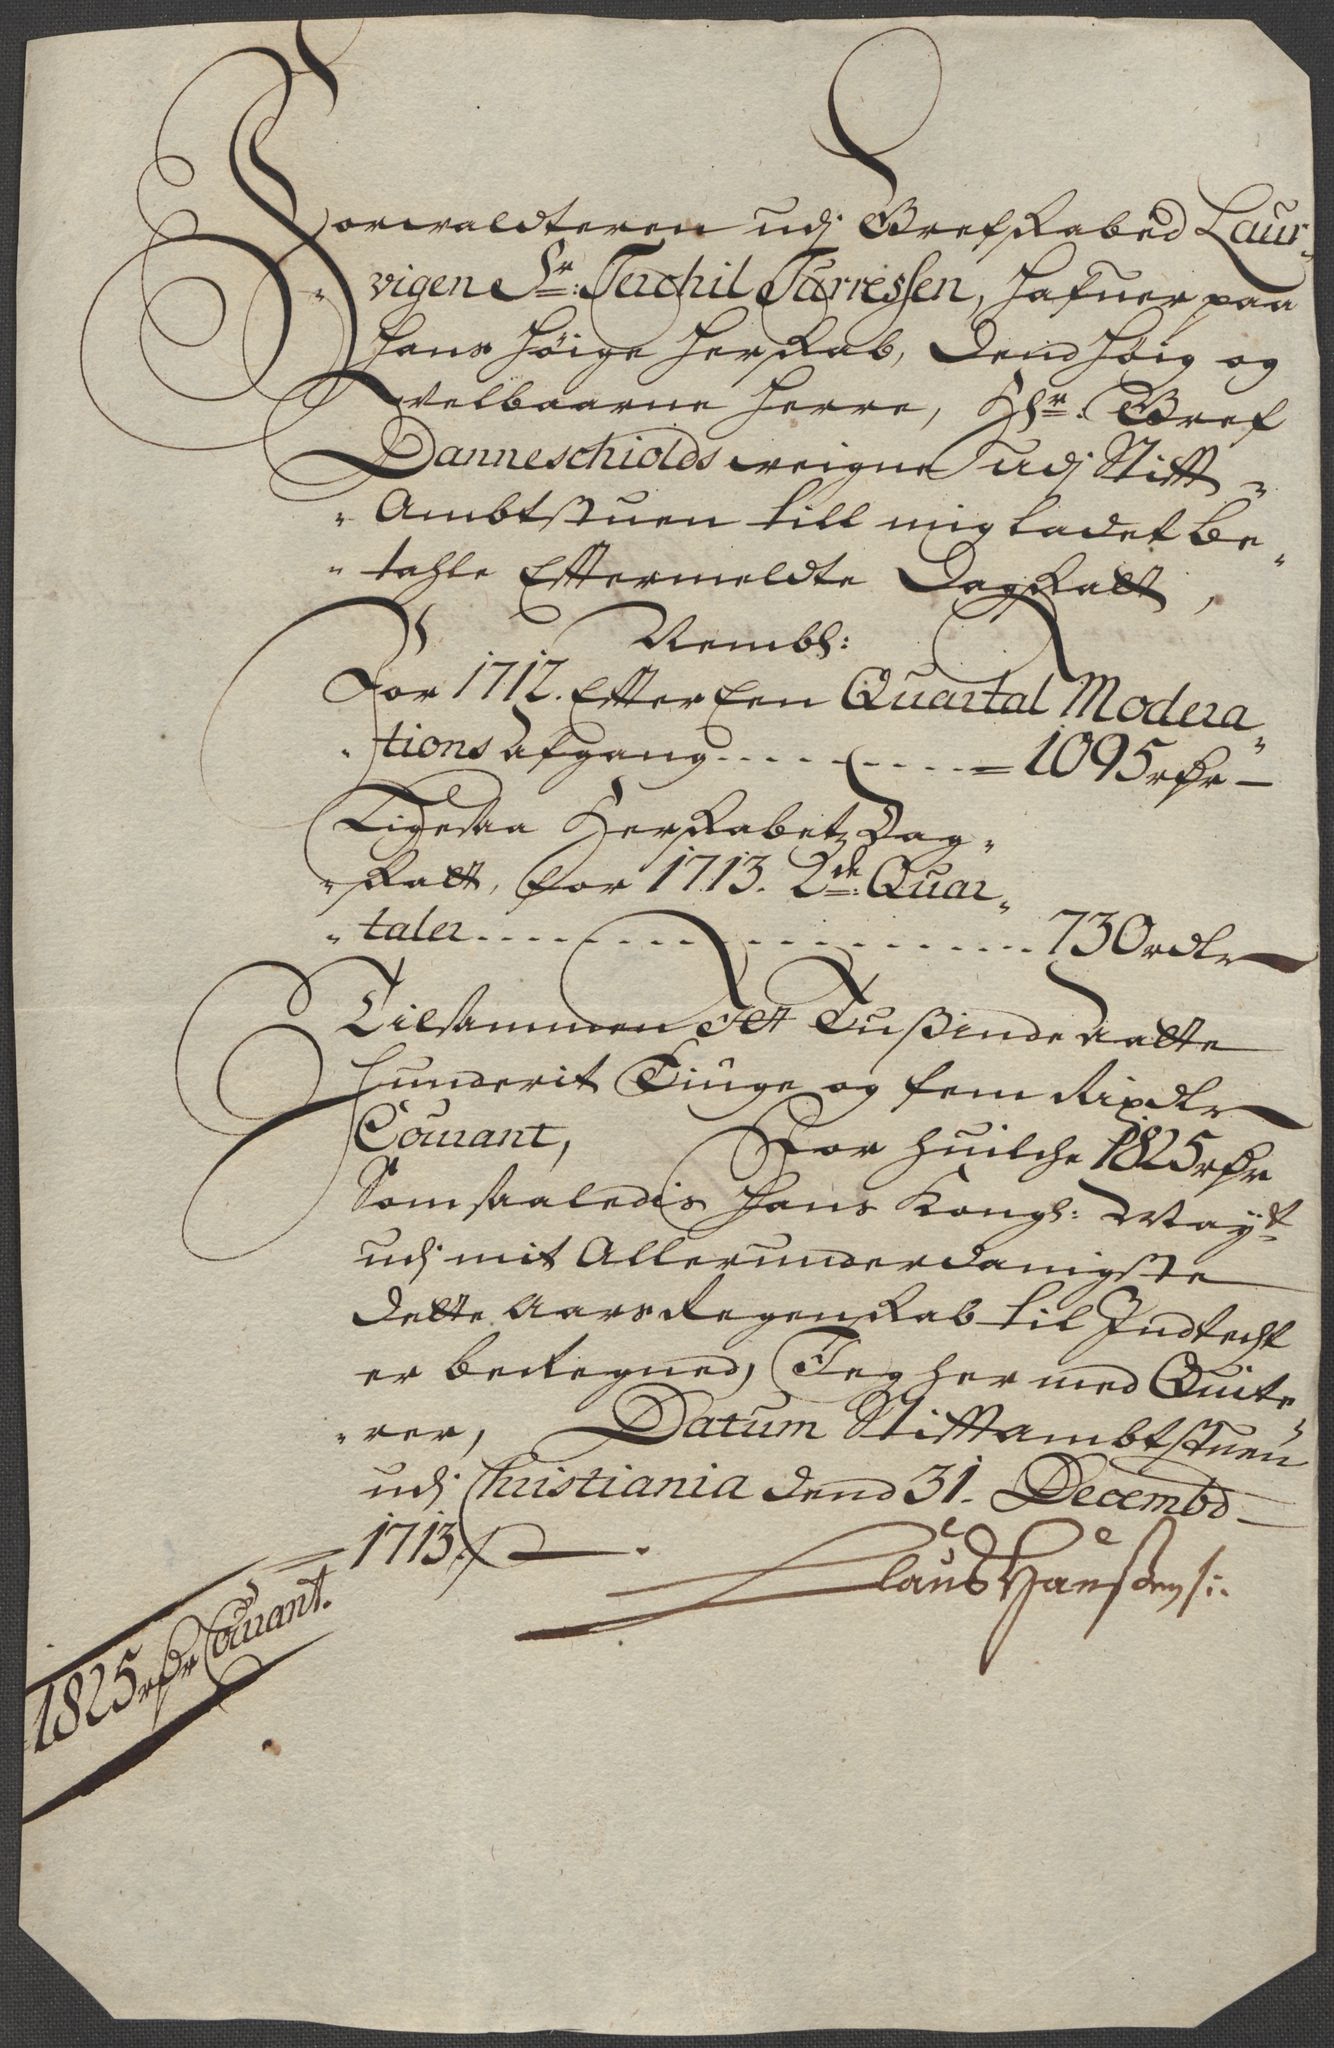 Forvaldteren udj Grefskabed Laur-
vigen Sr: Terchil Turressen, hafuer paa
hans høige herskab, Dend høig og
velbaarne herre, Hr: Gref
Danneschiolds veigne udj Stift-
Ambtstuen till mig ladet be-
tahle Eftermeldte Dagskatt,
Nembl:
For 1712. Efter Een Quartal Modera-
tions Afgang ......... 1095 rdr
Ligesaa Herskabetz Dag-
skatt, for 1713. 2de: Quar-
taler ............ 730 rdlr
Tilsammen Ett Tusinde Aatte
hunderit Tiuge og fem Rixdlr
Courant, For huilche 1825 rdr
Som saaledis hans Kongl: Mayt
udj mit Allerunderdanigste
dette Aars Regenskab til Indtecht
er beregned, Jeg hermed Quite-
rer, Datum Stiftambtstuen
udj Christiania dend 31. Decembd
1713.
Claus Hansen
1825 rdr Courant.